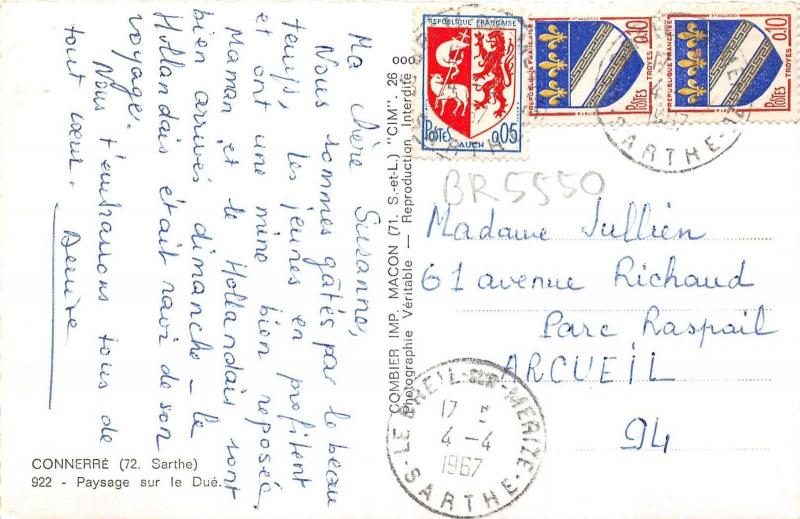 Ma chère Susanne,
Nous sommes gâtés par le beau
temps, les jeunes en profitent
et ont une mine bien reposée.
Maman et le Hollandais sont
bien arrivés dimanche – le
Hollandais était ravi de son
voyage.
Nous t'embrassons tous de
tout cœur. Denise
CONNERRÉ (72. Sarthe)
922 - Paysage sur le Dué.
COMBIER IMP. MACON (71. S.-et-L.) "CIM" 26 000
Photographie Véritable — Reproduction Interdite
REPUBLIQUE FRANÇAISE
POSTES 0,05
AUCH
REPUBLIQUE FRANÇAISE
0,10
POSTES TROYES
REPUBLIQUE FRANÇAISE
0,10
POSTES TROYES
SARTHE
BR5550
Madame Jullien
61 avenue Richaud
Parc Raspail
ARCUEIL
94
LE BREIL-SUR-MERIZE
17
4-4
1967
SARTHE